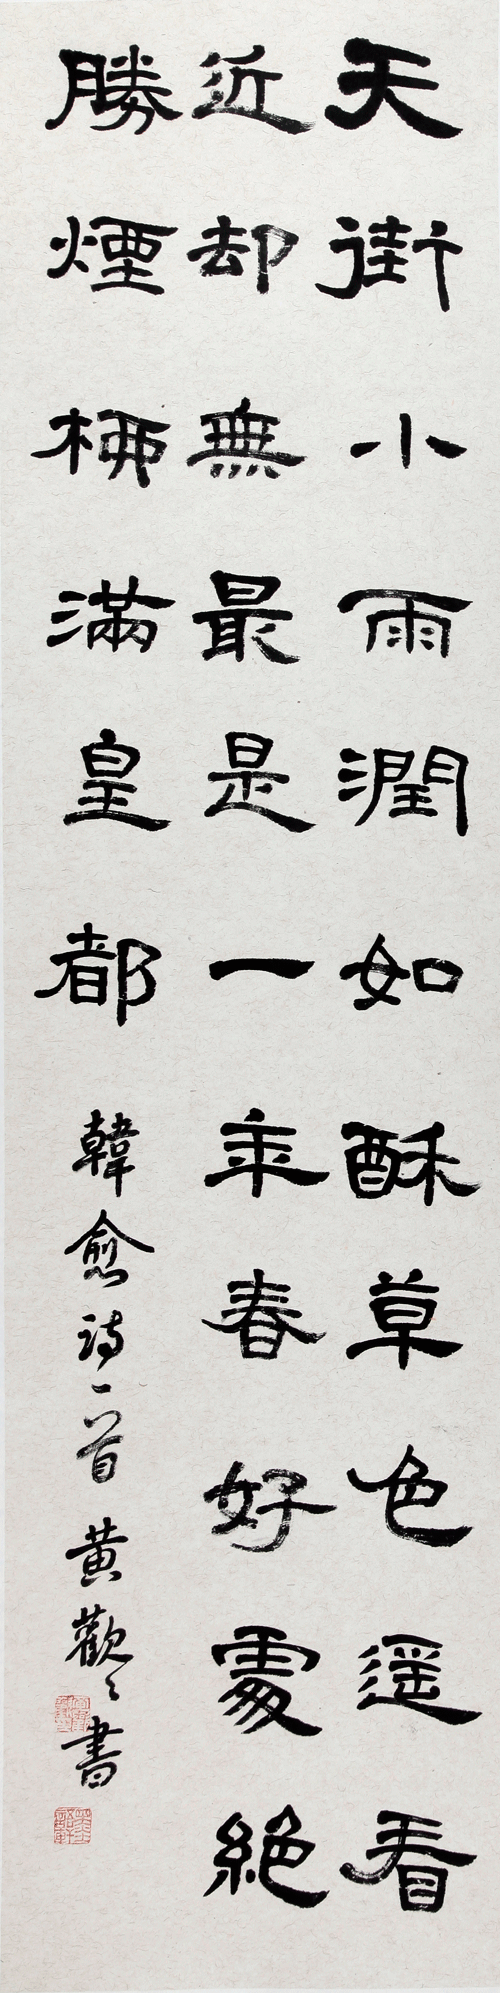 天街小雨潤如酥草色遥看
近却無最是一年春好處絕
勝煙柳滿皇都
韓愈詩一首 黄觀〻書